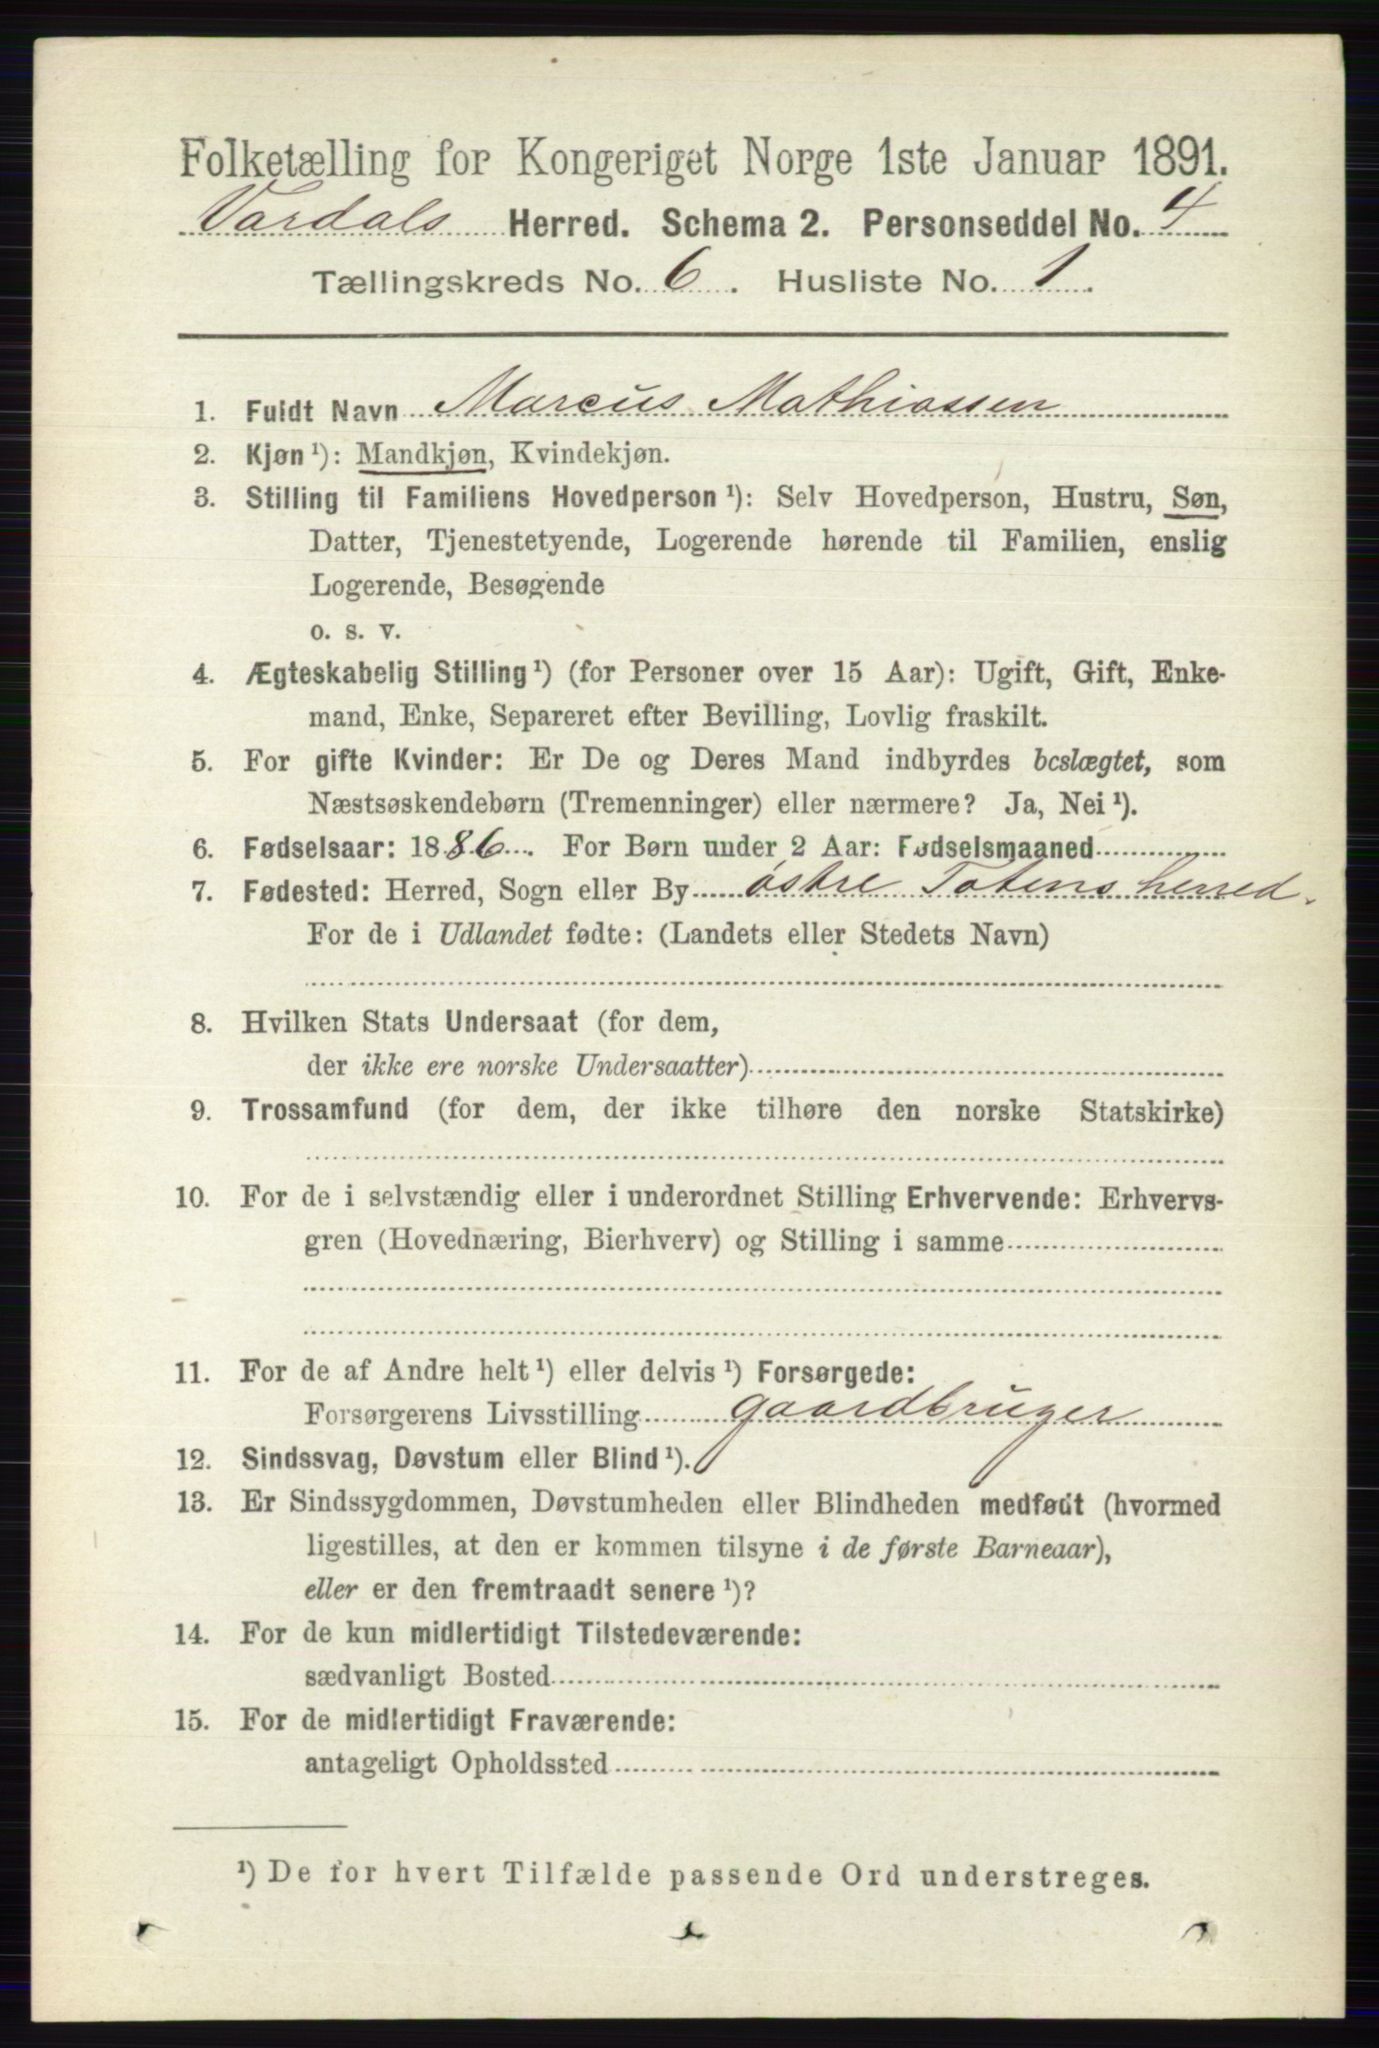 Folketælling for Kongeriget Norge 1ste Januar 1891.
Vardals Herred. Schema 2. Personseddel No. 4
Tællingskreds No. 6. Husliste No. 1.
1. Fuldt Navn Marcus Mathiassen
2. Kjøn¹): Mandkjøn, Kvindekjøn.
3. Stilling til Familiens Hovedperson¹): Selv Hovedperson, Hustru, Søn,
Datter, Tjenestetyende, Logerende hørende til Familien, enslig
Logerende, Besøgende
o. s. v.
4. Ægteskabelig Stilling¹) (for Personer over 15 Aar): Ugift, Gift, Enke-
mand, Enke, Separeret efter Bevilling, Lovlig fraskilt.
5. For gifte Kvinder: Er De og Deres Mand indbyrdes beslægtet, som
Næstsøskendebørn (Tremenninger) eller nærmere? Ja, Nei¹).
6. Fødselsaar: 1886. For Børn under 2 Aar: Fødselsmaaned
7. Fødested: Herred, Sogn eller By østre Totens herred.
For de i Udlandet fødte: (Landets eller Stedets Navn)
8. Hvilken Stats Undersaat (for dem,
der ikke ere norske Undersaatter)
9. Trossamfund (for dem, der ikke tilhøre den norske Statskirke)
10. For de i selvstændig eller i underordnet Stilling Erhvervende: Erhvervs-
gren (Hovednæring, Bierhverv) og Stilling i samme
11. For de af Andre helt¹) eller delvis¹) Forsørgede:
Forsørgerens Livsstilling gaardbruger
12. Sindssvag, Døvstum eller Blind¹).
13. Er Sindssygdommen, Døvstumheden eller Blindheden medfødt (hvormed
ligestilles, at den er kommen tilsyne i de første Barneaar),
eller er den fremtraadt senere¹)?
14. For de kun midlertidigt Tilstedeværende:
sædvanligt Bosted
15. For de midlertidigt Fraværende:
antageligt Opholdssted
¹) De for hvert Tilfælde passende Ord understreges.